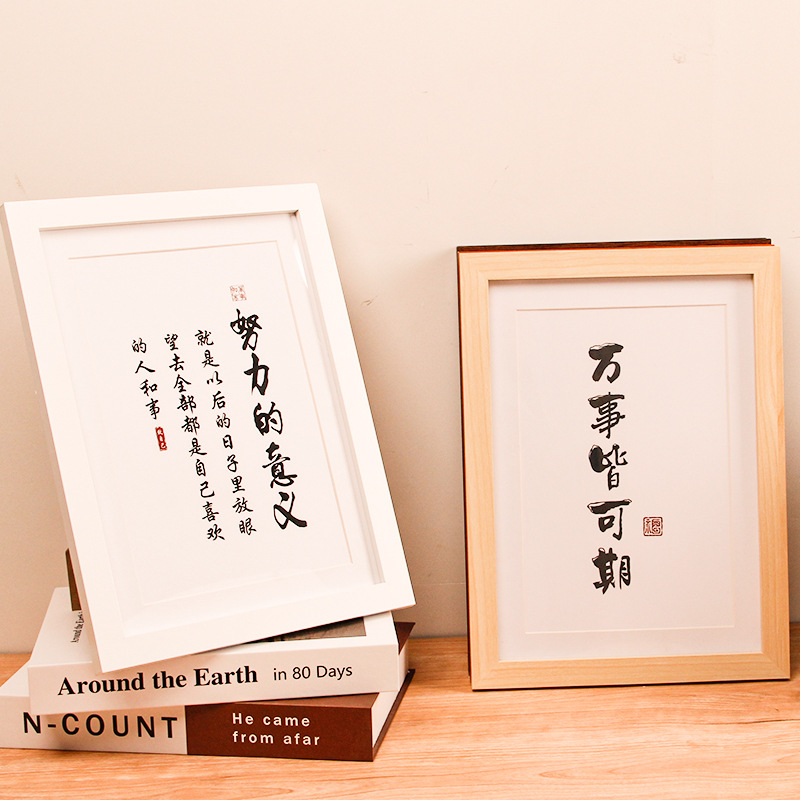 努力的意义
就是以后的日子里放眼
望去全部都是自己喜欢
的人和事
万事皆可期
Around the Earth in 80 Days
N-COUNT
He came
from afar